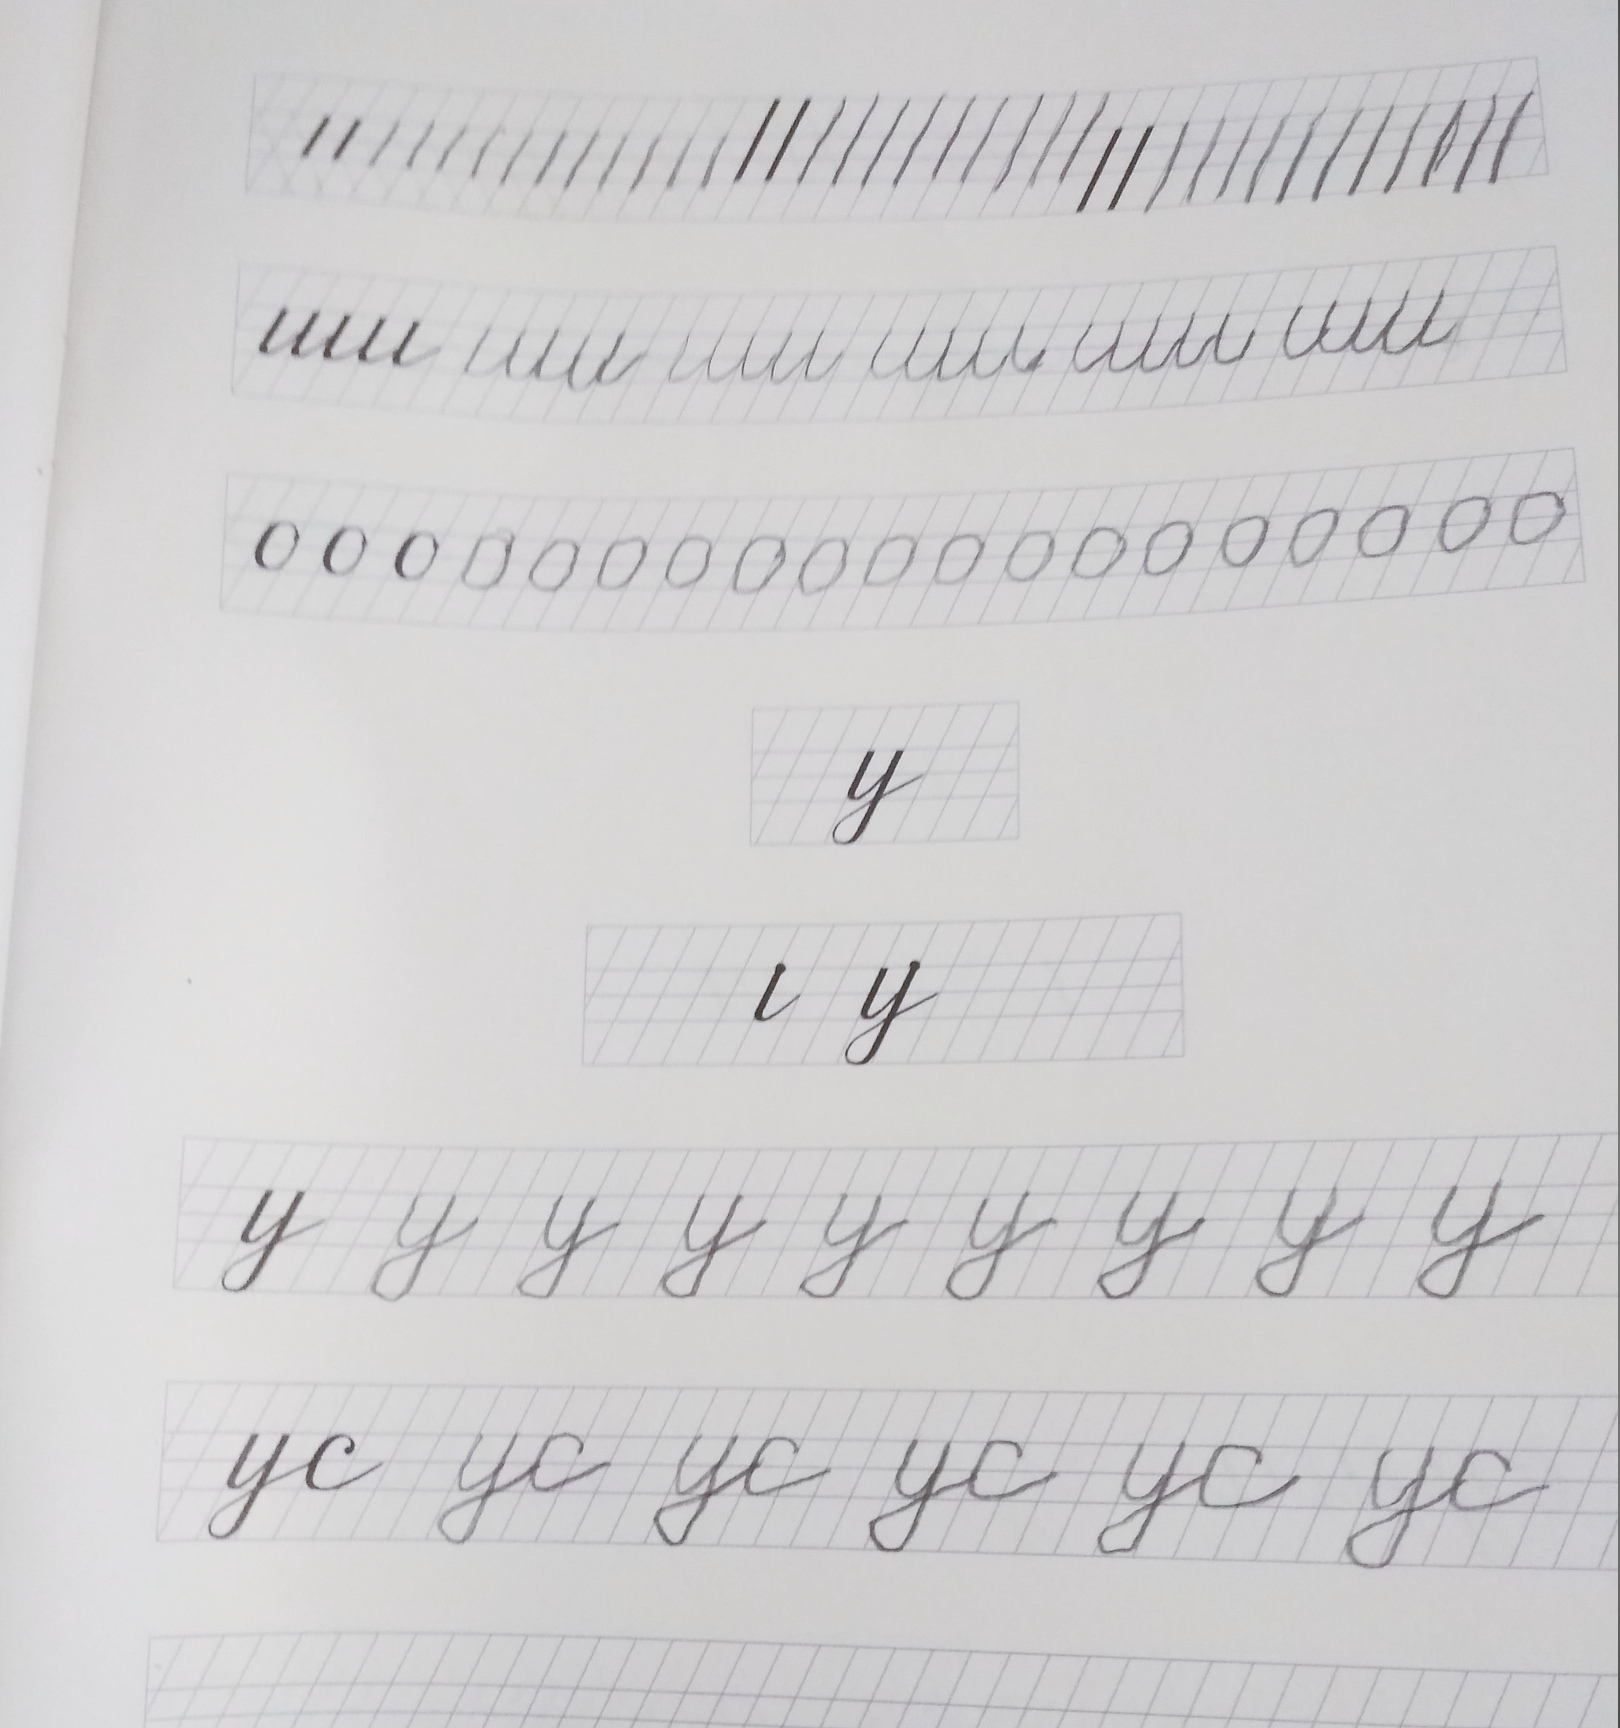 о о о о о о о о о о о о о о о о о о о
у
у
у у у у у у у у у
ус ус ус ус ус ус